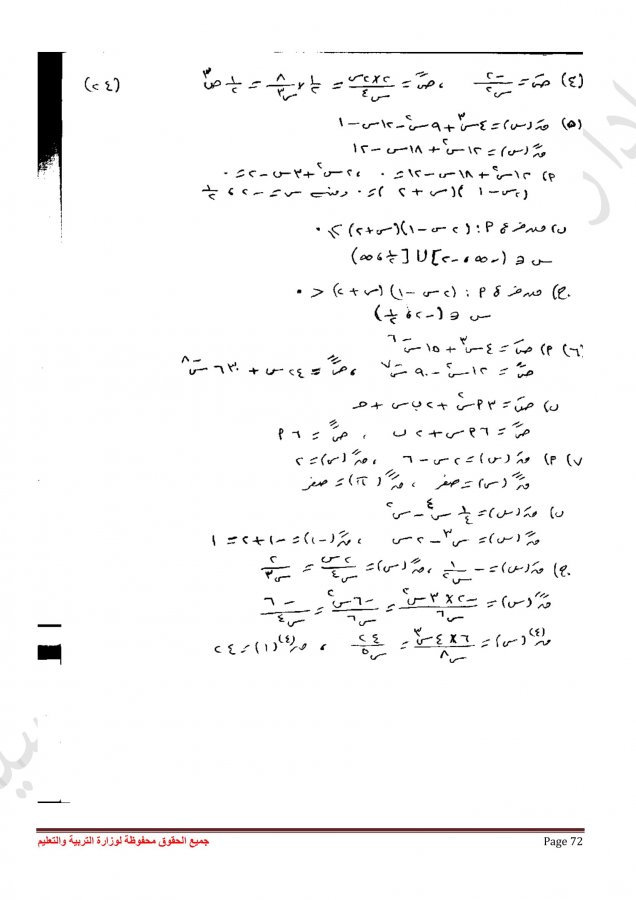 (٢٤)
(٤) صَ = -٢/س٢ ، صً = ٢×٢س/س٤ = ٨/س٣ × ١/٢ = ١/٢ ص٣
(٥) قَ(س) = ٤س٣ + ٩س٢ - ١٢س - ١
قً(س) = ١٢س٢ + ١٨س - ١٢
P) ١٢س٢ + ١٨س - ١٢ = ٠ ، ٢س٢ + ٣س - ٢ = ٠
(٢س - ١)(س + ٢) = ٠ ومنه س = -٢ ، ١/٢
ب) من فرع P : (٢س - ١)(س + ٢) ≥ ٠
س ∈ (-∞ ، -٢] U [١/٢ ، ∞)
ج) من فرع P : (٢س - ١)(س + ٢) < ٠
س ∈ (-٢ ، ١/٢)
(٦) P) صَ = ٤س٣ + ١٥س-٦
صً = ١٢س٢ - ٩٠س-٧ ، صًَ = ٢٤س + ٦٣٠س-٨
ب) صَ = ٣Pس٢ + ٢ب س + جـ
صً = ٦Pس + ٢ب ، صًَ = ٦P
(٧ P) قَ(س) = ٢س - ٦ ، قً(س) = ٢
قًَ(س) = صفر ، قًَ(π) = صفر
ب) قَ(س) = ١/٤ س٤ - س٢
قً(س) = س٣ - ٢س ، قً(-١) = -١ + ٢ = ١
ج) قَ(س) = -١/س٢ ، قً(س) = ٢س/س٤ = ٢/س٣
قًَ(س) = -٢×٣س٢/س٦ = -٦س٢/س٦ = -٦/س٤
ق(٤)(س) = ٦×٤س٣/س٨ = ٢٤/س٥ ، ق(٤)(١) = ٢٤
جميع الحقوق محفوظة لوزارة التربية والتعليم
Page 72